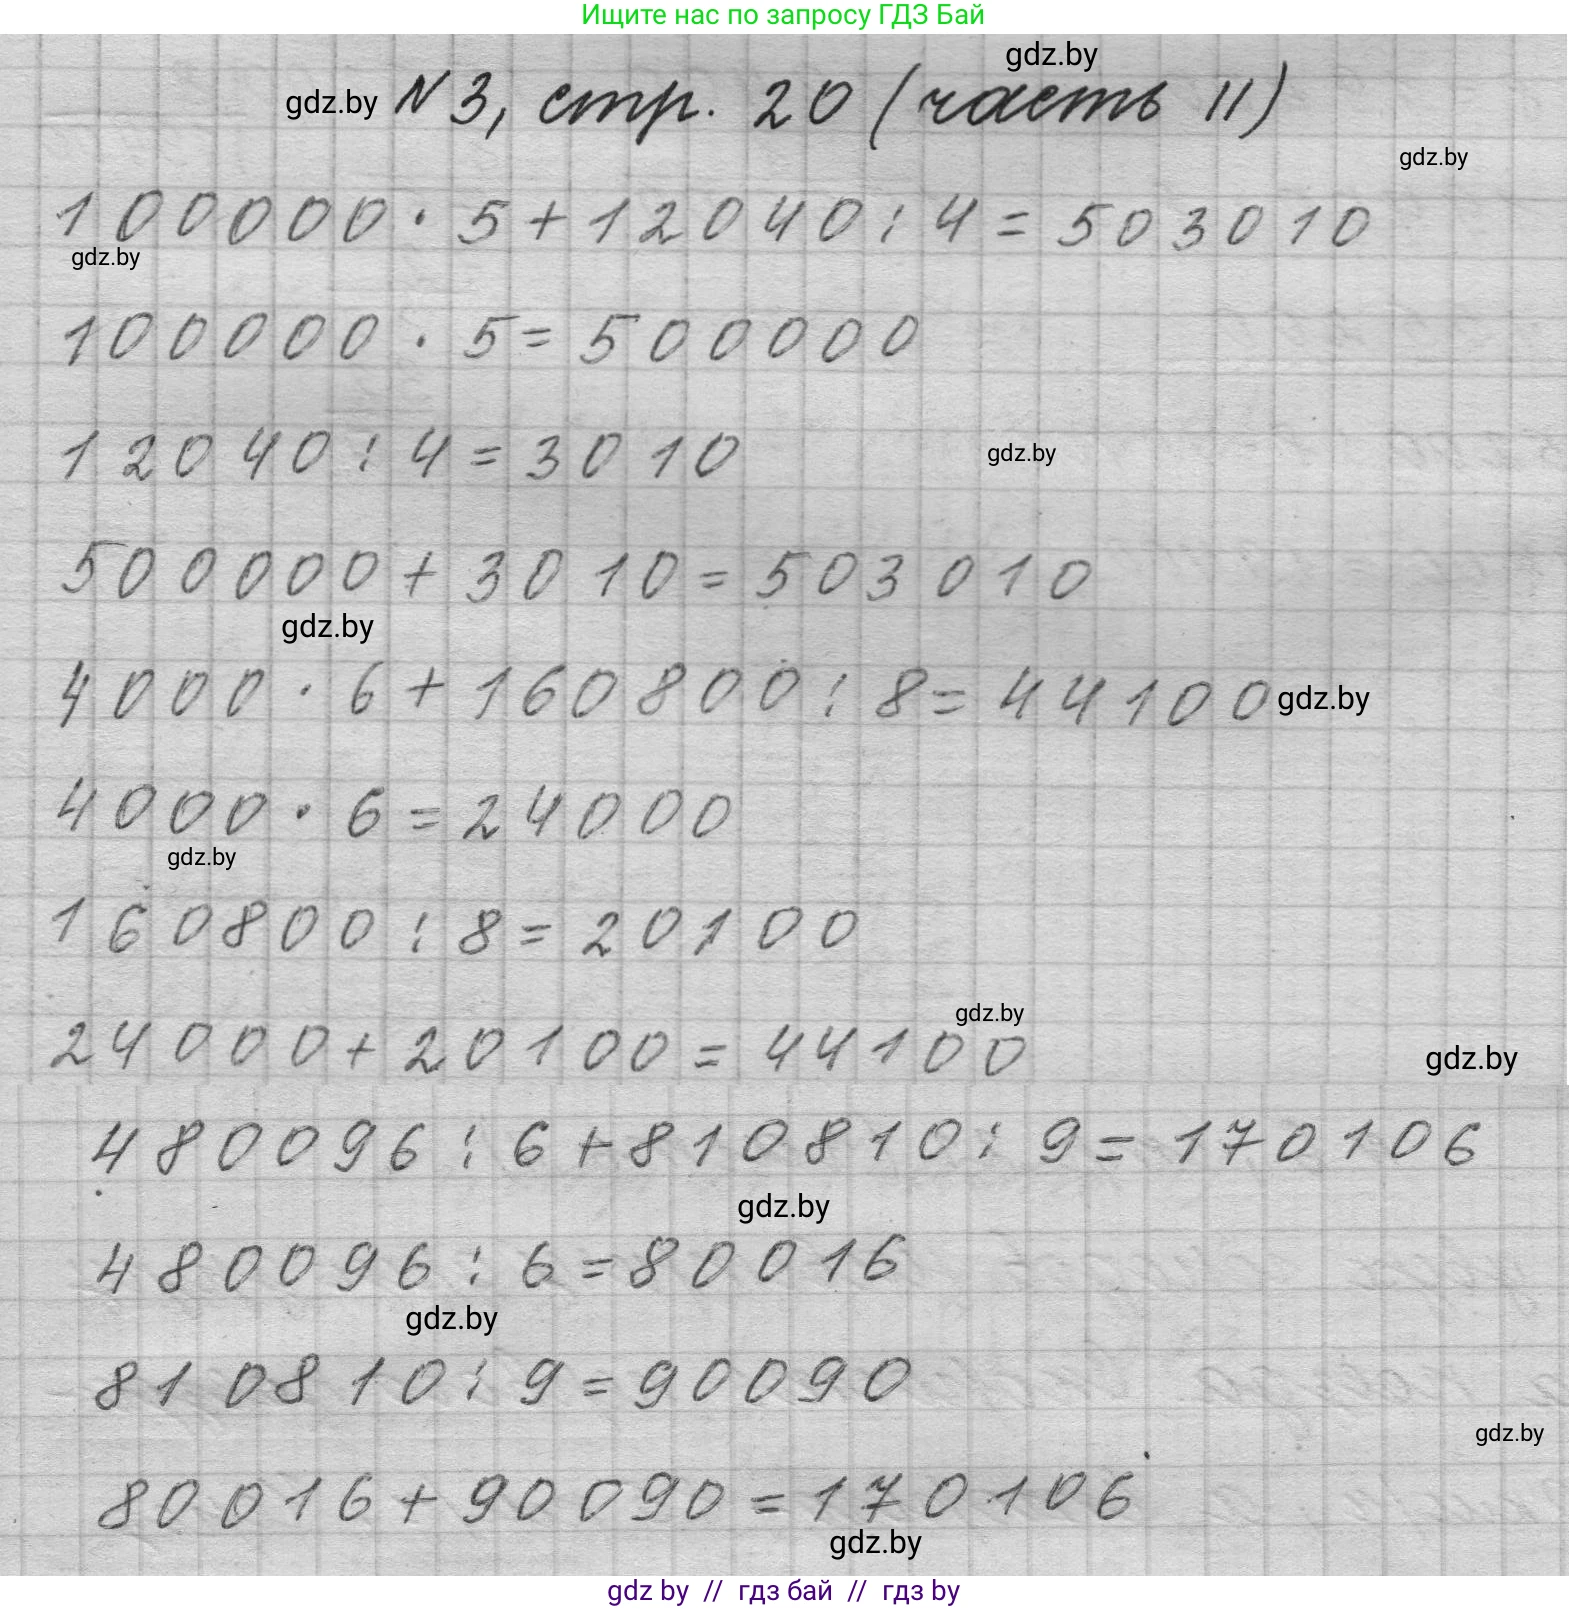 Ищите нас по запросу ГДЗ Бай
gdz.by
gdz.by N 3, стр. 20 (часть II)
gdz.by
100000 · 5 + 12040 : 4 = 503010
gdz.by
100000 · 5 = 500000
12040 : 4 = 3010
gdz.by
500000 + 3010 = 503010
gdz.by
4000 · 6 + 160800 : 8 = 44100 gdz.by
4000 · 6 = 24000
gdz.by
160800 : 8 = 20100
gdz.by
24000 + 20100 = 44100
gdz.by
480096 : 6 + 810810 : 9 = 170106
gdz.by
480096 : 6 = 80016
gdz.by
810810 : 9 = 90090
gdz.by
80016 + 90090 = 170106
gdz.by
gdz by // гдз бай // гдз by